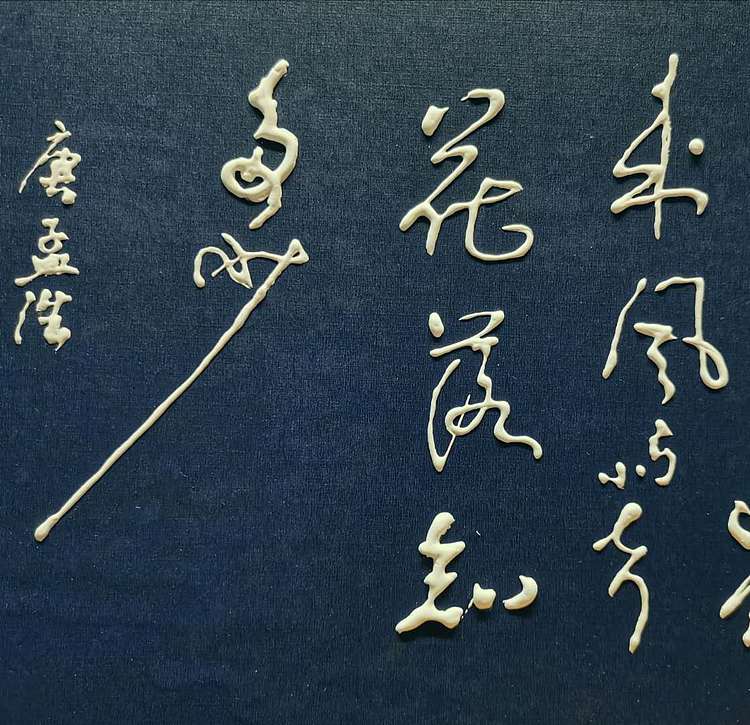 来风雨声
花落知
多少
唐孟浩